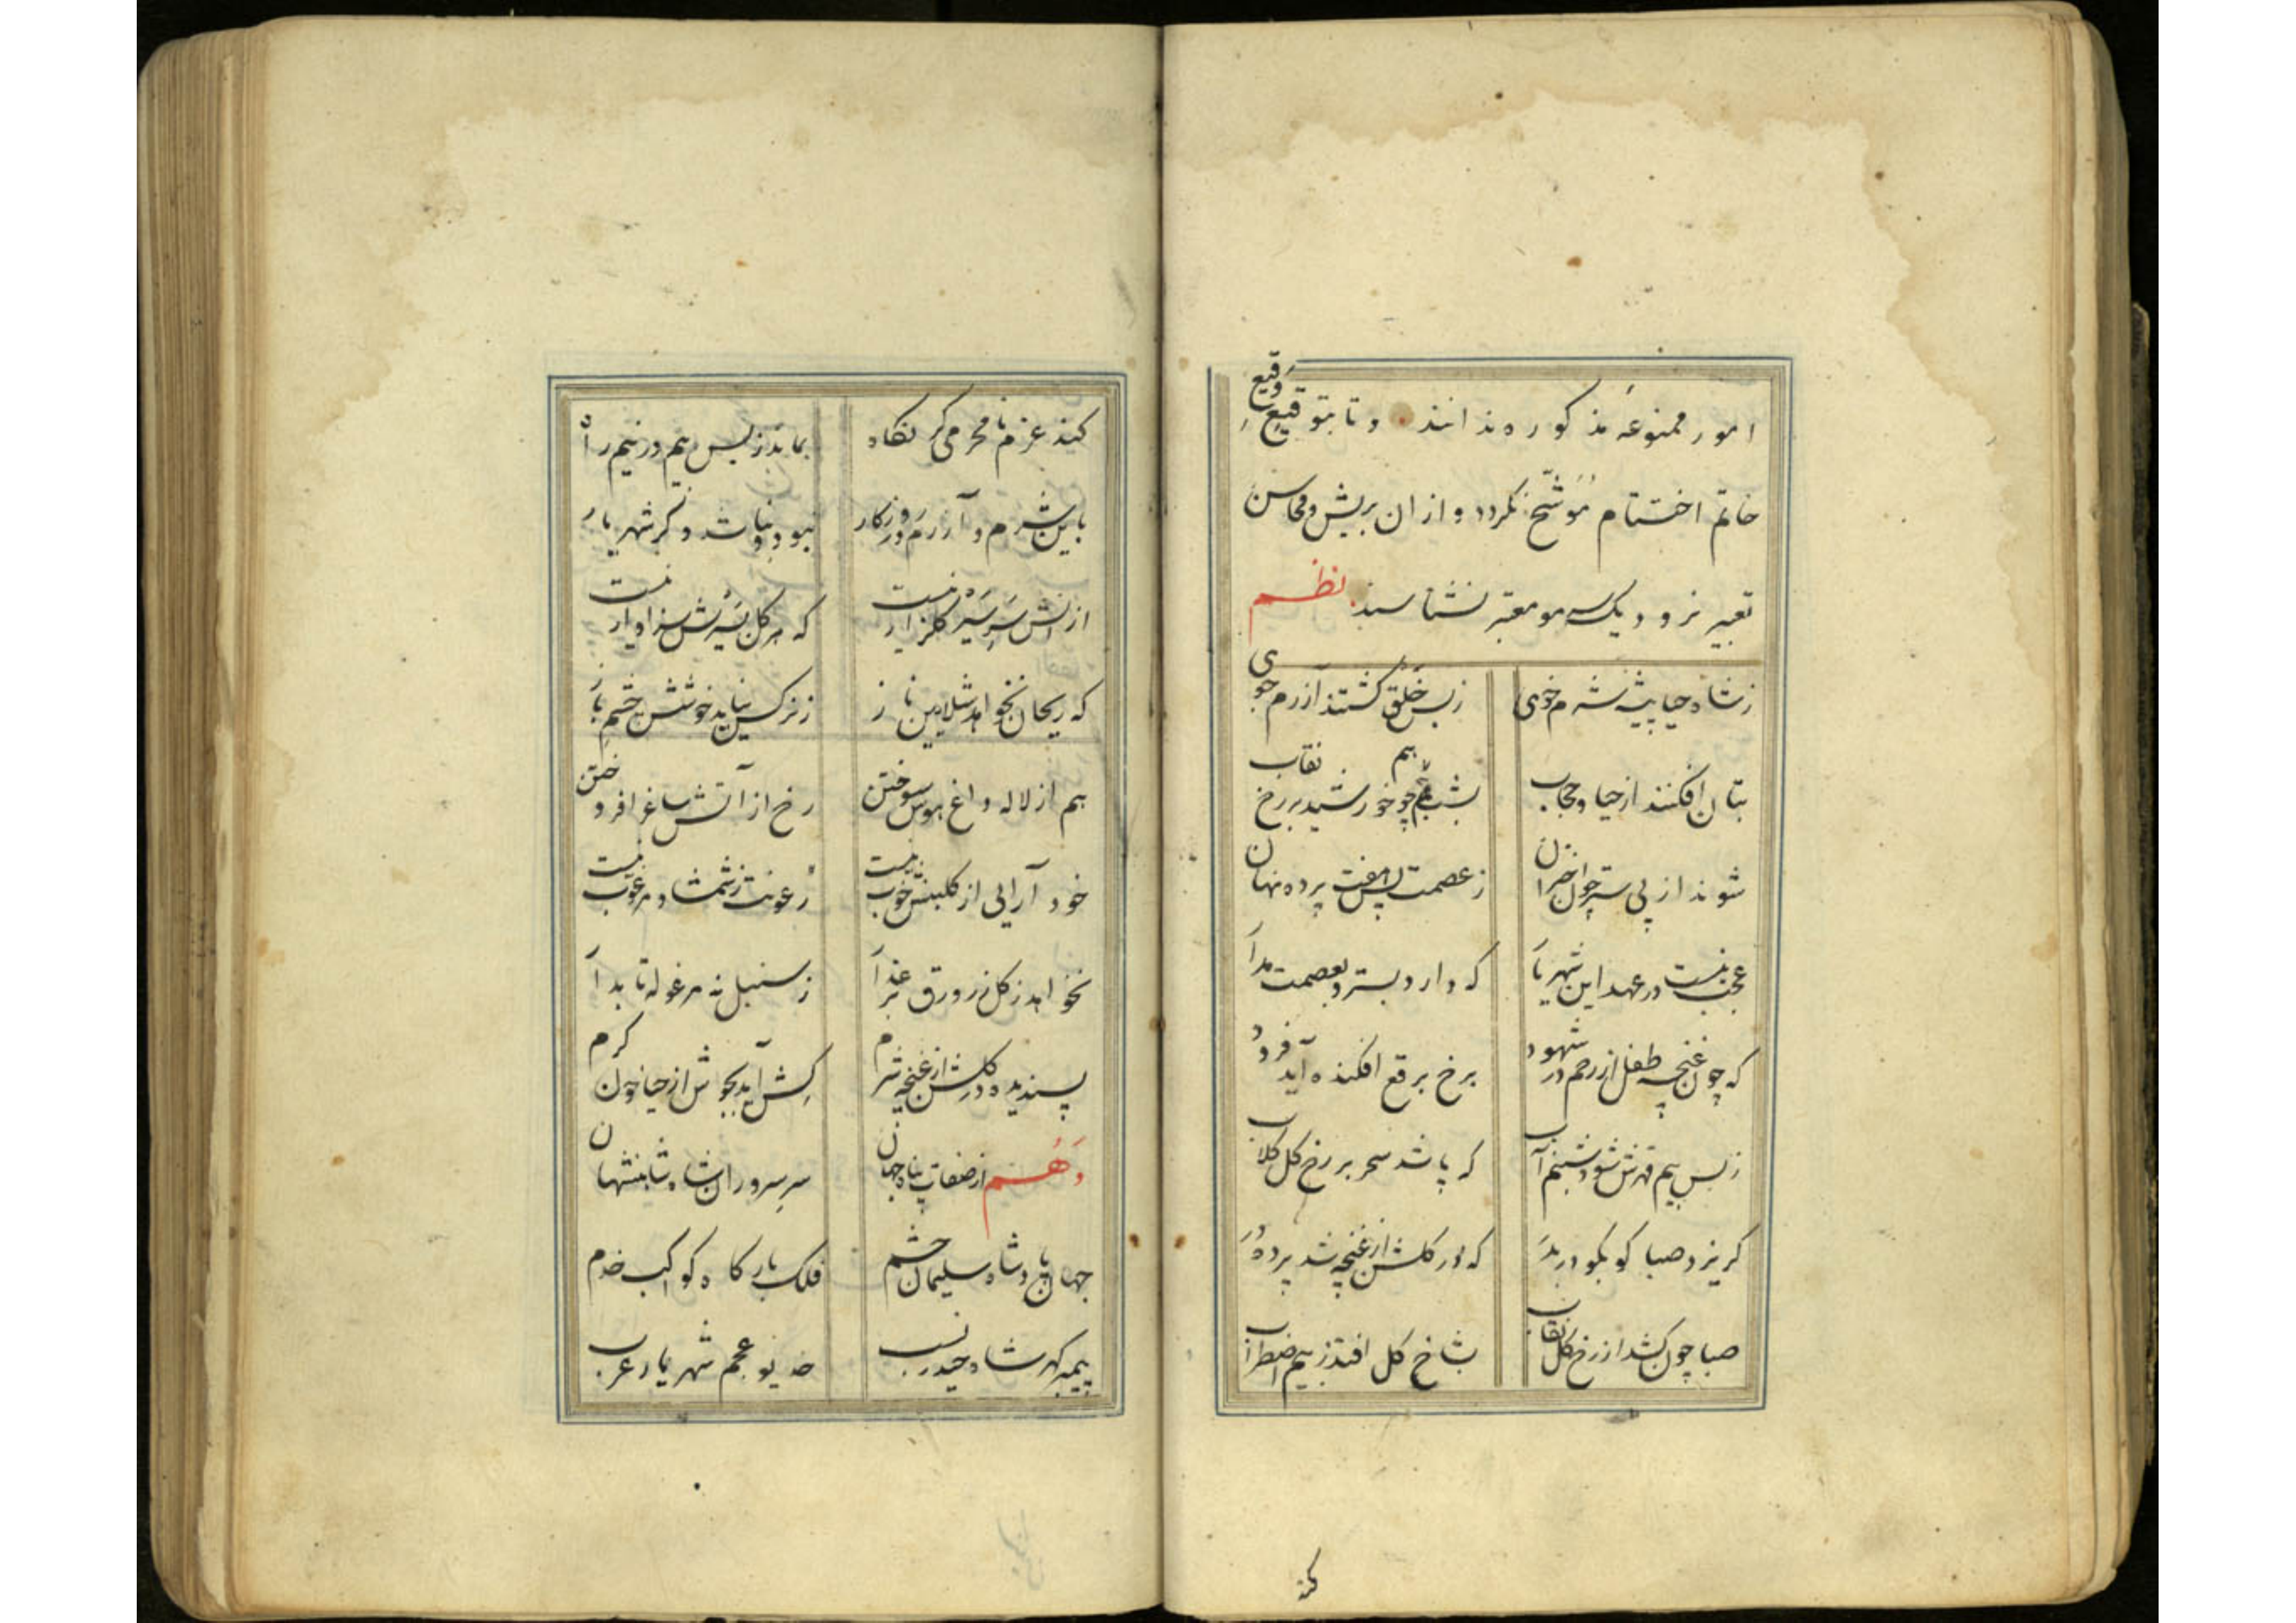 امور ممنوعهٔ مذکوره ندانند و تا بتوقیعِ وَقیع
خاتم اختتام مُوَشّح نگردد و ازان بریش و محاسن
تعبیر نرود و یک سر مو معتبر نشناسند نظـم
ز شاه حیا پیشهٔ شرم خوی ز بس خَلق گشتند آزرم جوی
بتان افکنند از حیا و حجاب بشب هم چو خورشید بر رخ نقاب
شوند از پی ستر چون اختران ز عصمت پس هفت پرده نهان
عجب نیست در عهد این شهریار که دارد بستر و بعصمت مدار
که چون غنچه طفل از رحم در شهود برخ برقع افکنده آید فرود
ز بس بیم قهرش شود شبنم آب که پاشد سحر بر رخ گل گلاب
گریزد صبا کو بکو در بدر که در گلشن از غنچه شد پرده در
صبا چون کشد از رخ گل نقاب بشاخ گل افتد ز بیم اضطراب
کند
کند عزم نامحرمی گر نگاه بماند ز بس بیم در نیم راه
باین شرم و آزرم در روزگار نبود و نباشد دگر شهریار
ازانش سَرِ سَیرِ گلزار نیست که هر گل بسَیرش سزاوار نیست
که ریحان نخواهد شلایین ناز ز نرگس نیاید خوشش چشمِ باز
هم از لاله داغ هوس سوختن رخ از آتش ساغر افروختن
خود آرایی از گلبنش خوب نیست رُعونت ز شمشاد مرغوب نیست
نخواهد ز گل زر ورق بر عذار ز سنبل نه مرغوله تابدار
پسندیده در گلشن از غنچه شرم کِش آید بجوش از حیا خون گرم
وَهُـم از صفات پناه جهان سرِ سروران شاه شاهنشهان
جهان پادشاه سلیمان حشم فلک بارگاه کواکب خدم
پیمبر گهر شاه حیدر نسب خدیو عجم شهریار عرب